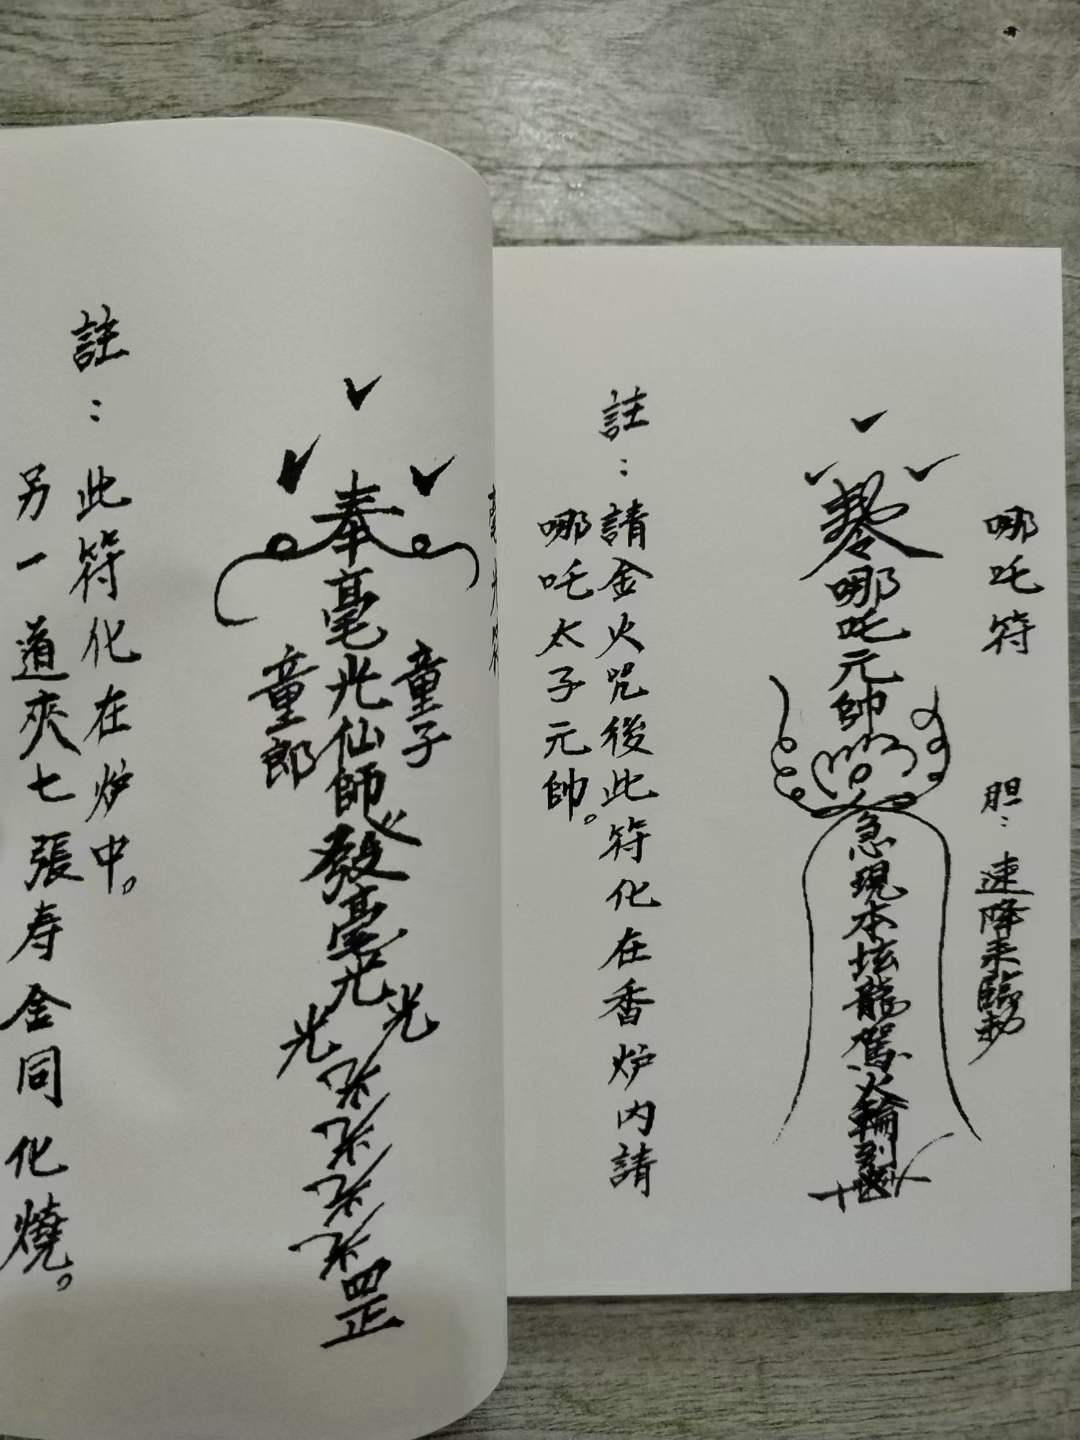 哪吒符
胆：速降來臨勅
哪吒元帥
急現本坛龍駕火輪到
註：請金火咒後此符化在香炉內請
哪吒太子元帥。
童子
奉毫光仙師發毫光
童郎
光
光
罡
註：此符化在炉中。
另一道夾七張寿金同化燒。